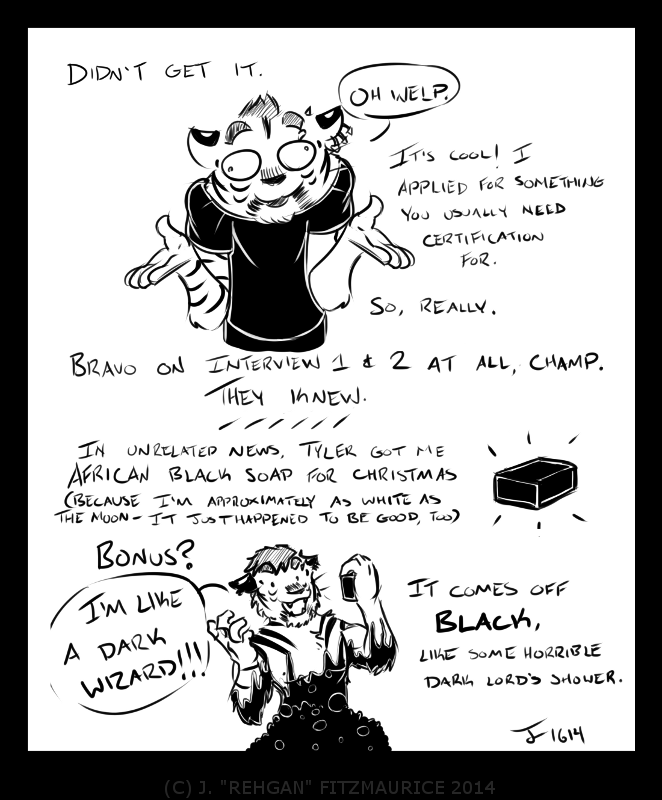 DIDN'T GET IT.
OH WELP.
IT'S COOL! I
APPLIED FOR SOMETHING
YOU USUALLY NEED
CERTIFICATION
FOR.
SO, REALLY.
BRAVO ON INTERVIEW 1 & 2 AT ALL, CHAMP.
THEY KNEW.
IN UNRELATED NEWS, TYLER GOT ME
AFRICAN BLACK SOAP FOR CHRISTMAS
(BECAUSE I'M APPROXIMATELY AS WHITE AS
THE MOON - IT JUST HAPPENED TO BE GOOD, TOO)
BONUS?
I'M LIKE
A DARK
WIZARD!!!
IT COMES OFF
BLACK,
LIKE SOME HORRIBLE
DARK LORD'S SHOWER.
JF 1614
(C) J. "REHGAN" FITZMAURICE 2014